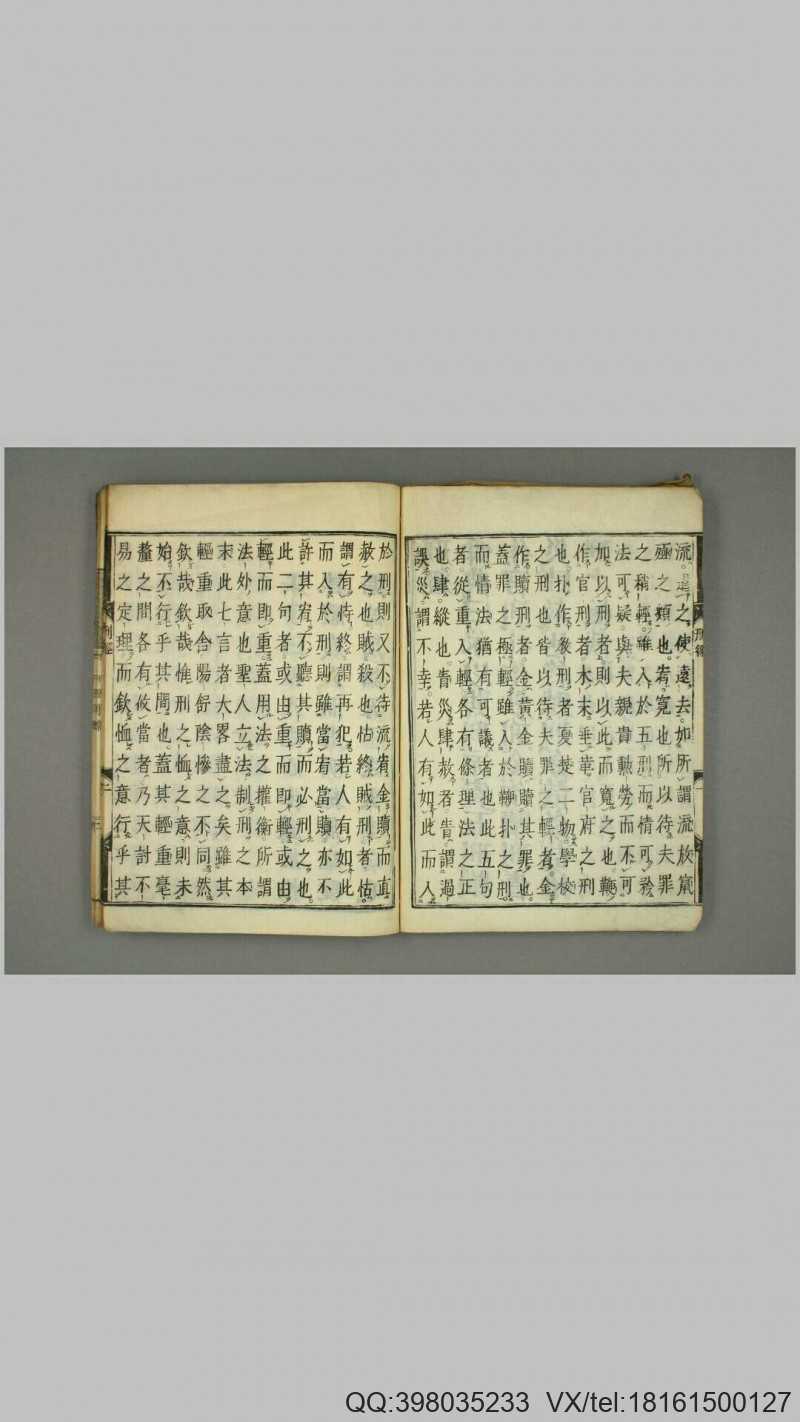 流遣之使遠去如所謂流放竄
殛之類也宥寬也所以待夫罪
之稍輕雖入於五刑而情可矜
法可疑與夫親貴勲勞而不可
加以刑者則以此而寬之也鞭
作官刑者木末垂革官府之刑
也扑作教刑者夏楚二物學校
之刑也皆以待夫罪之輕者金
作贖刑者金黃金贖贖其罪也
蓋罪之極輕雖入於鞭扑之刑
而情法猶有可議者也此五句
者從重入輕各有條理法之正
也肆縱也眚災肆赦者眚謂過
誤災謂不幸若人有如此而入
於刑則又不待流宥金贖而直
赦之也賊殺也怙終賊刑者怙
謂有恃終謂再犯若人有如此
而入於刑則雖當宥當贖亦不
許其宥不聽其贖而必刑之也
此二句者或由重而即輕或由
輕而即重蓋用法之權衡所謂
法外意也聖人立法制刑之本
末此七言者大畧盡之矣雖其
輕重取舍陽舒隂慘之不同然
欽哉欽哉惟刑之恤之意則未
始不行乎其間也蓋其輕重毫
釐之間各有攸當者乃天討不
易之定理而欽恤之意行乎其
刑經
QQ:398035233 VX/tel:18161500127